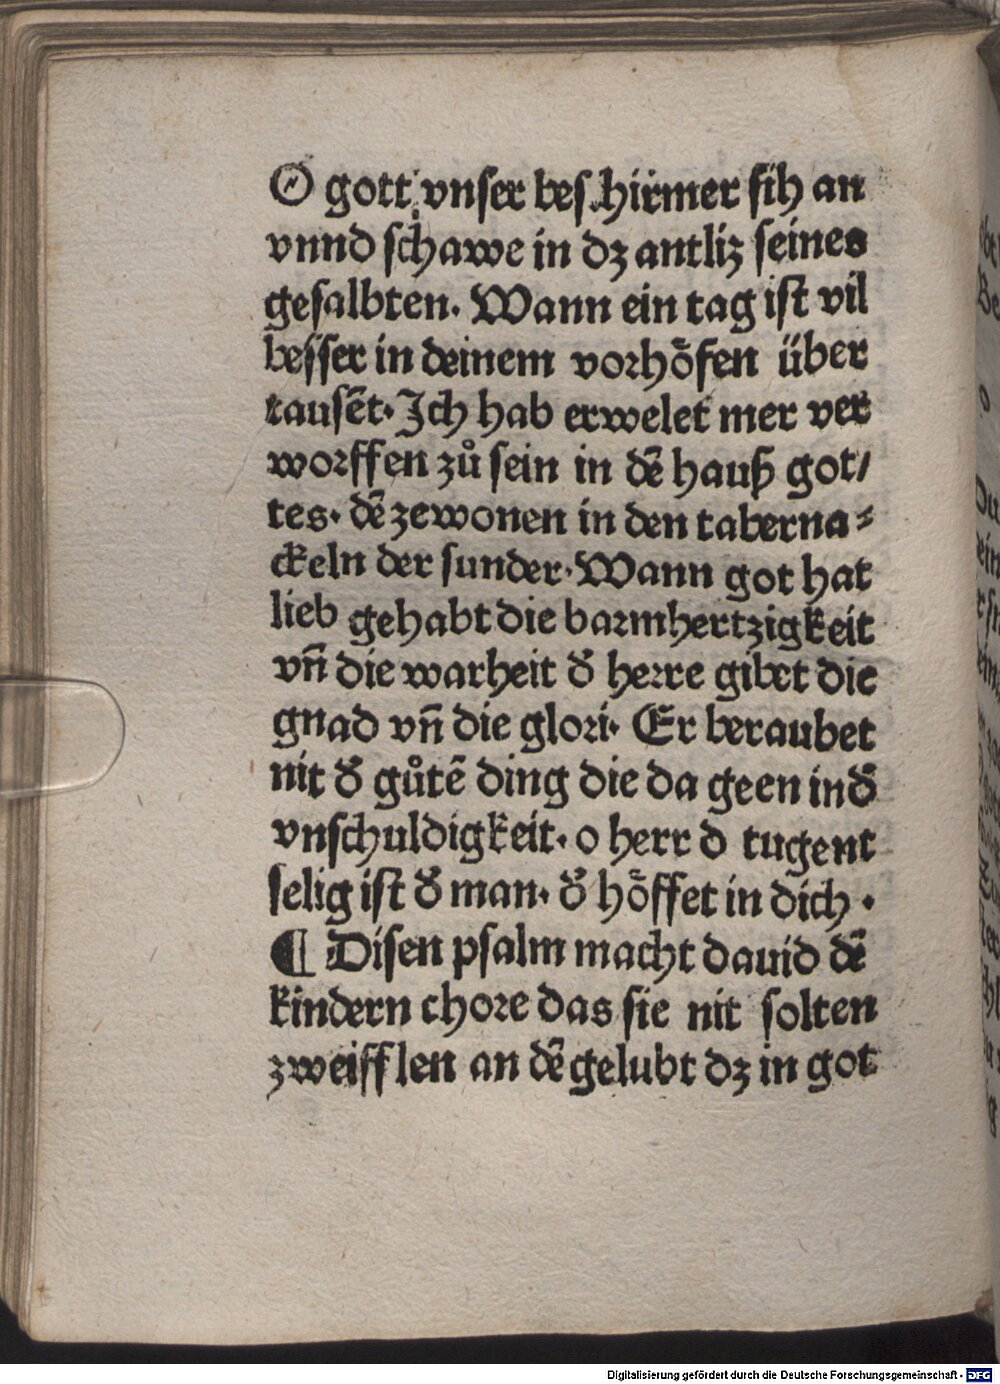 O gott vnser beschirmer sih an
vnnd schawe in dz antliz seines
gesalbten. Wann ein tag ist vil
besser in deinem vorhoͤfen über
tausēt. Ich hab erwelet mer ver
worffen zů sein in dē hauß got/
tes. dē zewonen in den taberna⸗
ckeln der sunder. Wann got hat
lieb gehabt die barmhertzigkeit
vn̄ die warheit d̓ herre gibet die
gnad vn̄ die glori. Er beraubet
nit d̓ gůtē ding die da geen in d̓
vnschuldigkeit. o herr d tugent
selig ist d̓ man. d̓ hoͤffet in dich .
¶ Disen psalm macht dauid dē
kindern chore das sie nit solten
zweifflen an dē gelubt dz in got
Digitalisierung gefördert durch die Deutsche Forschungsgemeinschaft - DFG